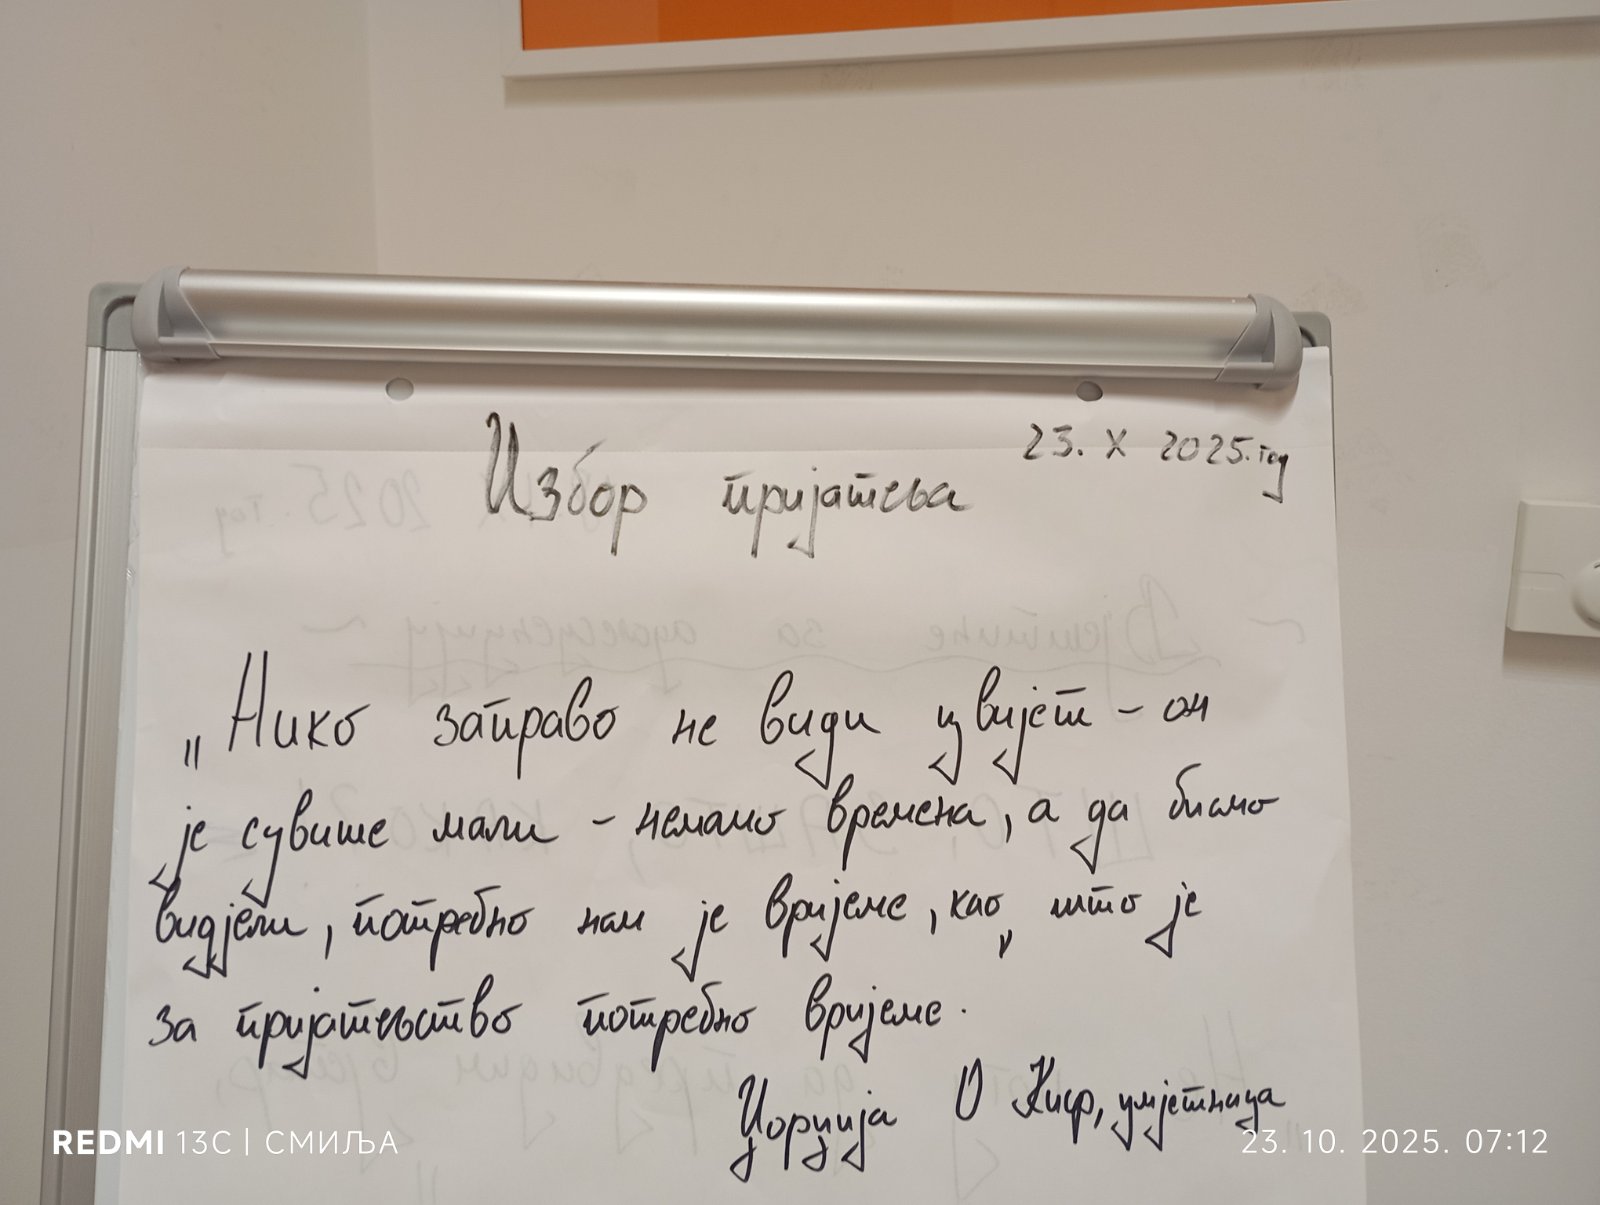 23. X 2025. год
Избор пријатеља
„Нико заправо не види цвијет – он
је сувише мали – немамо времена, а да бисмо
видјели, потребно нам је вријеме, као што је
за пријатељство потребно вријеме.
Џорџија О Киф, умјетница
REDMI 13C | СМИЉА
23. 10. 2025. 07:12